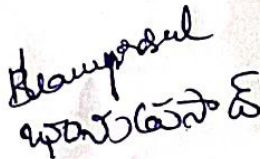 Bhanuprasad
భానుప్రసాద్